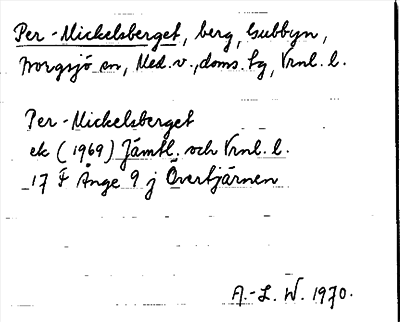 Per-Mickelsberget, berg, Gubbyn,
Borgsjö sn, Med. v., doms. tg, Vrnl. l.
Per-Mickelsberget
ek (1969) Jämtl. och Vrnl. l.
17 F Ånge 9 j Övertjärnen
A.-L. W. 1970.